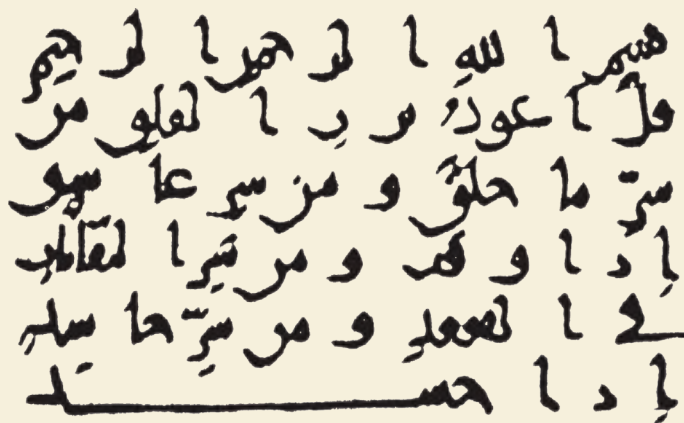 بسم الله الرحمن الرحيم
قل أعوذ برب الفلق من
شرّ ما خلق و من شرِ غاسقٍ
إذا وقب و من شرِ النفّاثات
في العقد و من شرِّ حاسدٍ
إذا حسد